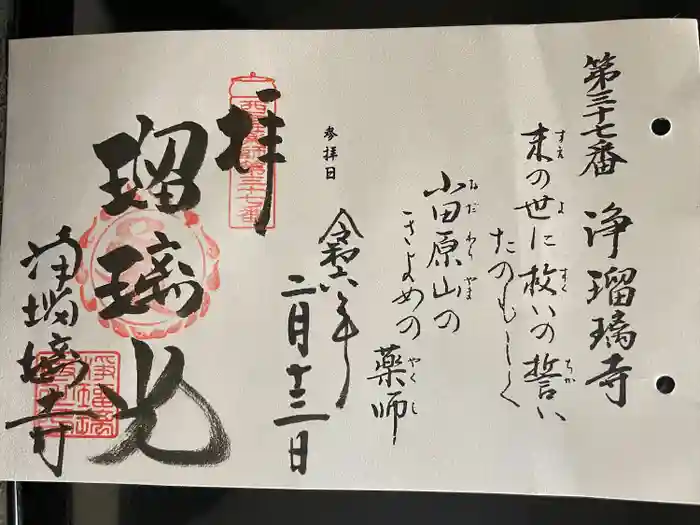 第三十七番 浄瑠璃寺
末の世に救いの誓い
たのもしく
小田原山の
きよめの
薬師
参拝日
令和六年
二月十三日
拝
西国薬師第三十七番
瑠璃光
浄瑠璃寺